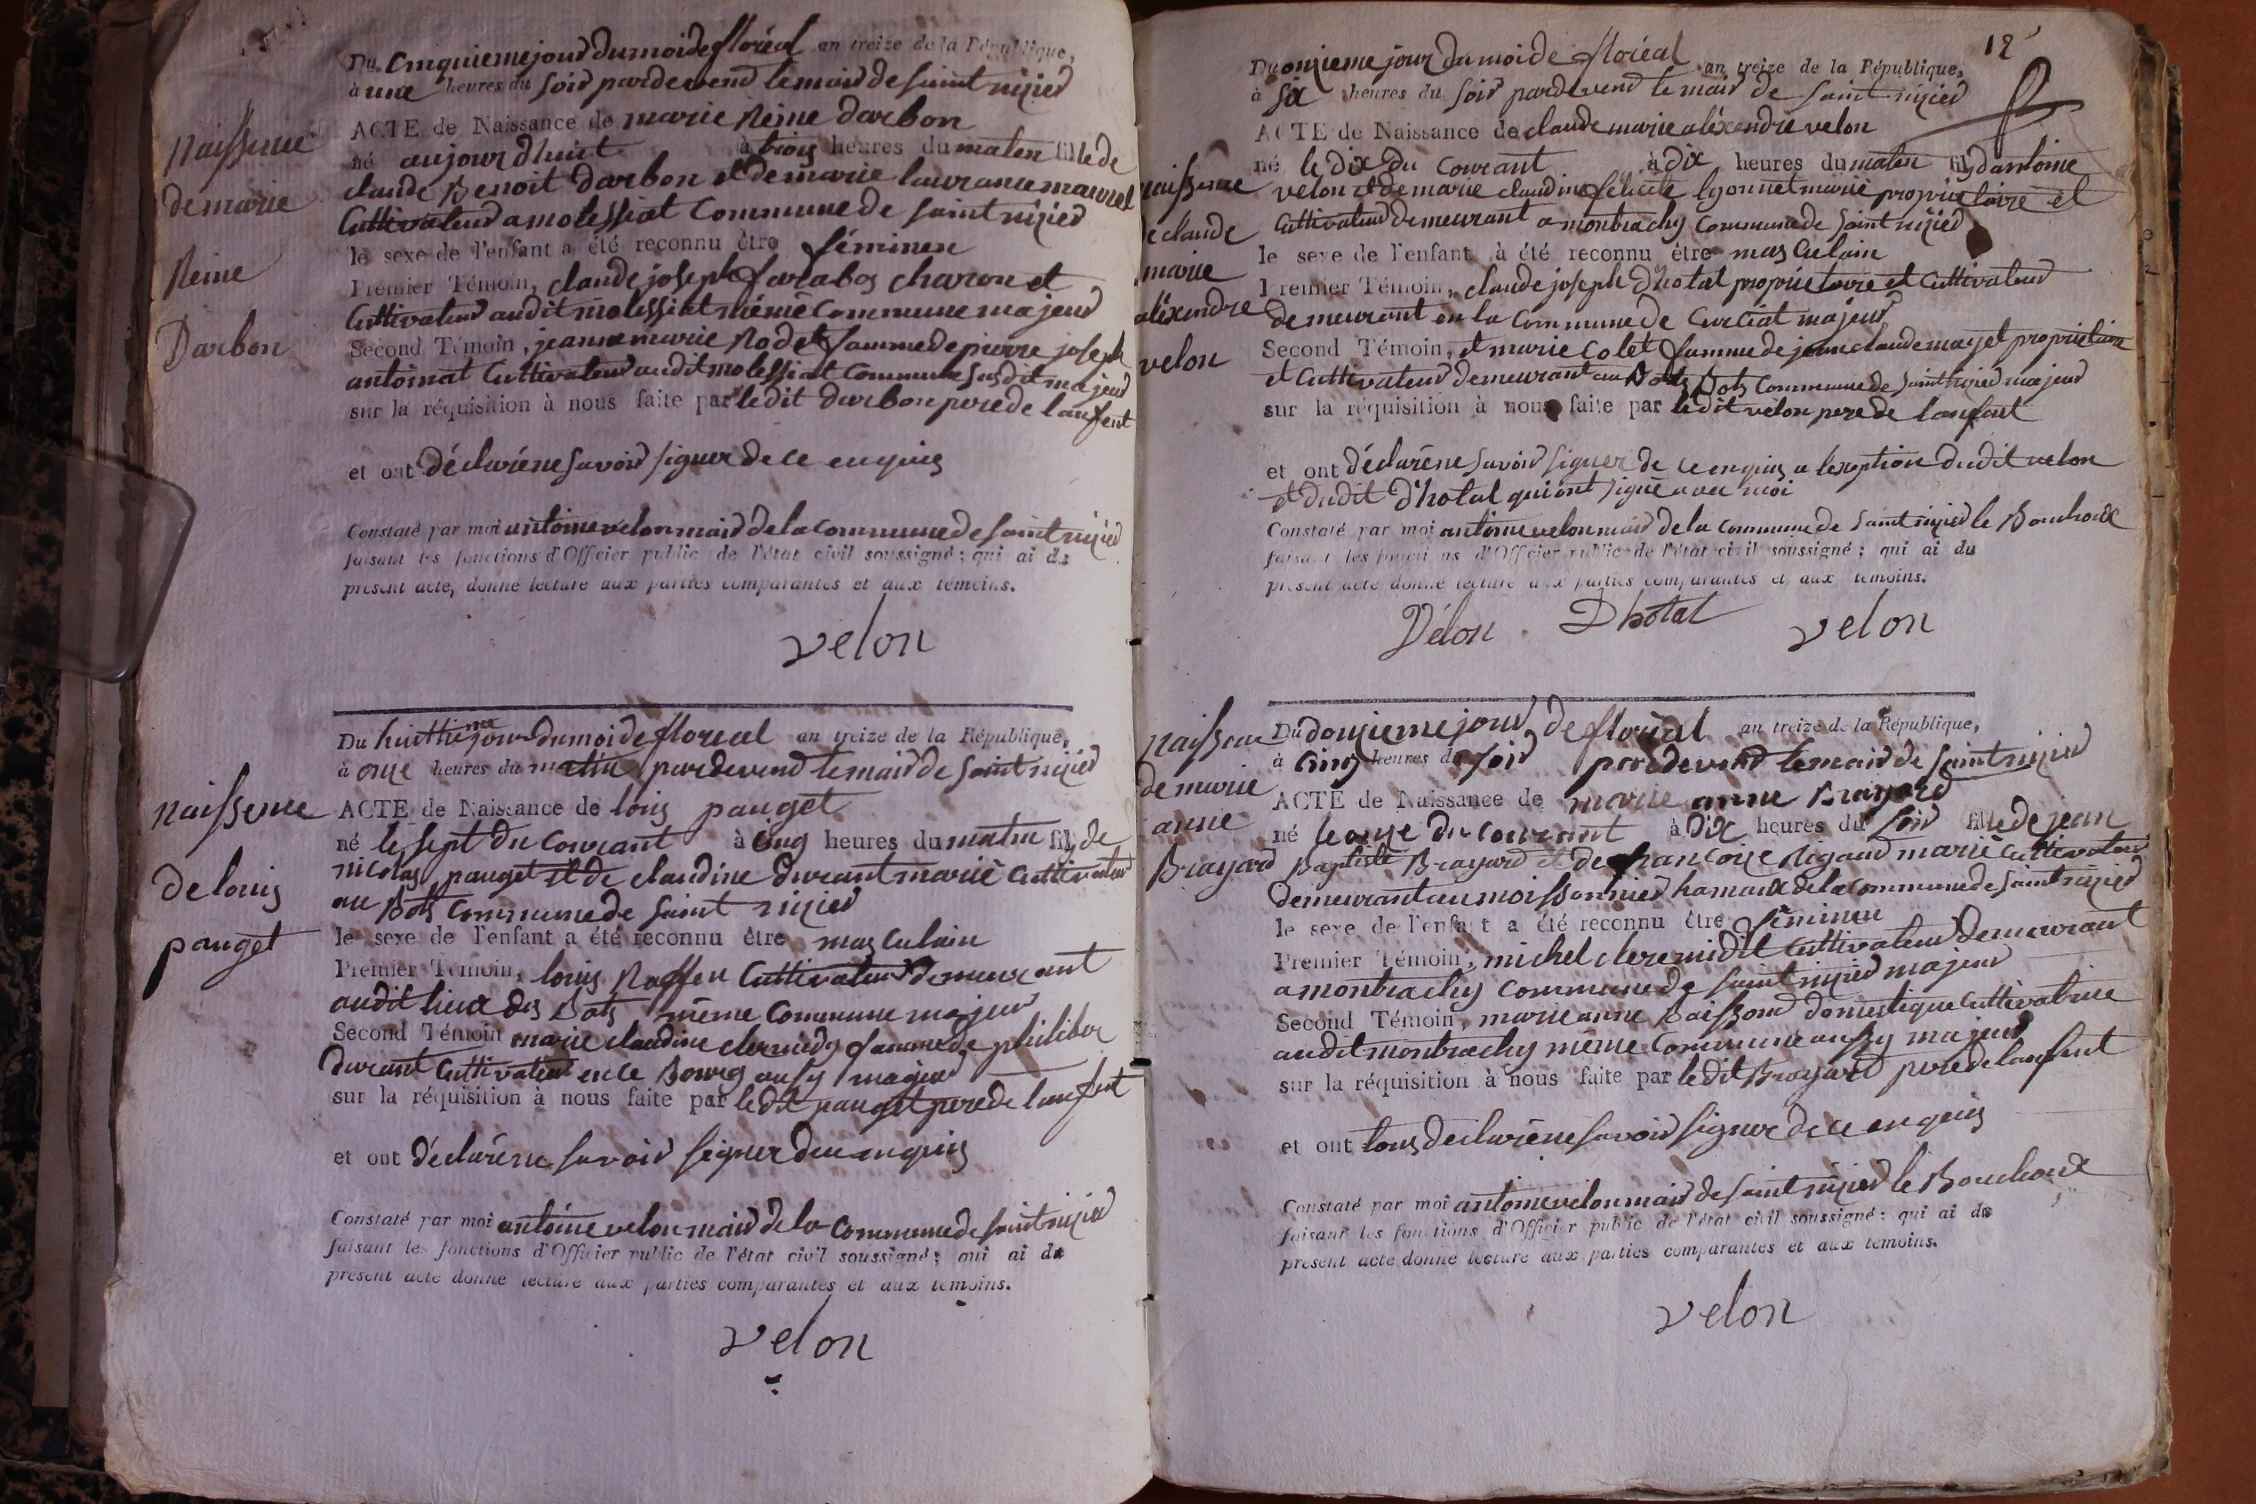 Du Cinquieme jour du moi de floréal an treize de la République,
à une heures du soir pardevend le maire de saint nizier
ACTE de Naissance de marie Reine Darbon
né aujourdhuit à trois heures du maten fille de
claude Benoit Darbon et de marie laurance
Cultivateur a molessiat Commune de saint nizier
le sexe de l'enfant a été reconnu être féminen
Premier Témoin, claude joseph farabos charon et
Cultivateur audit molessiat même Commune majeur
Second Témoin, jeanne marie Rodet famme de pierre joseph
antoinat Cultivateur audit molessiat Commune susdit majeur
sur la réquisition à nous faite par ledit darbon pere de lanfent
et ont déclaréne savoir signer de ce enquis
Constaté par moi antoine velon mair de la commune de saint nizier
faisant les fonctions d'Officier public de l'état civil soussigné; qui ai du
présent acte, donné lecture aux parties comparantes et aux témoins.
velon
Naissence
de marie
Reine
Darbon
Du huittieme jour du moi de floreal an treize de la République,
à onze heures du matin pardevend le mair de saint nizier
ACTE de Naissance de louis pauget
né le sept du Courant à Cinq heures du matin fils de
nicolas pauget et de claudine durant marié Cultivateur
au Bots Commune de saint nizier
le sexe de l'enfant a été reconnu être masculain
Premier Témoin, louis Cultivateur demeurant
audit lieux des Bots même Commune majeur
Second Témoin marie claudine famme de philiber
durant Cultivateur en ce Bourg ausy majeur
sur la réquisition à nous faite par ledit pauget pere de lanfent
et ont déclaréne savoir signer de ce enquis
Constaté par moi antoine velon mair de la Commune de saint nizier
faisant les fonctions d'Officier public de l'état civil soussigné; qui ai du
présent acte donné lecture aux parties comparantes et aux témoins.
velon
Naissence
de louis
pauget
12
Du onzieme jour du moi de floréal an treize de la République,
à six heures du soir pardevend le mair de saint nizier
ACTE de Naissance de claude marie aléxendre velon
né le dix du Courant à dix heures du maten fils dantoine
velon et de marie claudine félicité lyonnet marié propriétaire et
Cultivateur demeurant a montrachy Commune de saint nizier
le sexe de l'enfant à été reconnu être masculain
Premier Témoin, claude joseph d'hotal propriétaire et Cultivateur
demeurant en la Commune de Curciat majeur
Second Témoin, et marie Colet famme de jean claude mayet propriétaire
et Cultivateur demeurant au Bots Commune de saint nizier majeur
sur la réquisition à nous faite par ledit velon pere de lanfant
et ont déclaréne savoir signer de ce enquis a lexeption dudit velon
et dudit d'hotal qui ont signé avec moi
Constaté par moi antoine velon mair de la Commune de saint nizier le Bouchoux
faisant les fonctions d'Officier public de l'état civil soussigné; qui ai du
présent acte donné lecture aux parties comparantes et aux témoins.
Vélon Dhotal velon
naissence
de claude
marie
aléxendre
velon
Du douzieme jour de floréal an treize de la République,
à Cinq heures du soir pardevend le mair de saint nizier
ACTE de Naissance de marie anne Brayard
né le onze du Courant à dix heures du soir fille de jean
Baptiste Brayard et de francoise Rigaud marié Cultivateur
demeurant au moissonnier hamaux de la commune de saint nizier
le sexe de l'enfant a été reconnu être féminen
Premier Témoin, michel Cultivateur demeurant
a montrachy Commune de saint nizier majeur
Second Témoin, marie anne domestique Cultivatrice
audit montrachy même Commune aussy majeur
sur la réquisition à nous faite par ledit Brayard pere de lanfant
et ont tous déclaréne savoir signer de ce enquis
Constaté par moi antoine velon mair de saint nizier le Bouchoux
faisant les fonctions d'Officier public de l'état civil soussigné: qui ai du
présent acte donné lecture aux parties comparantes et aux témoins.
velon
naissence
de marie
anne
Brayard